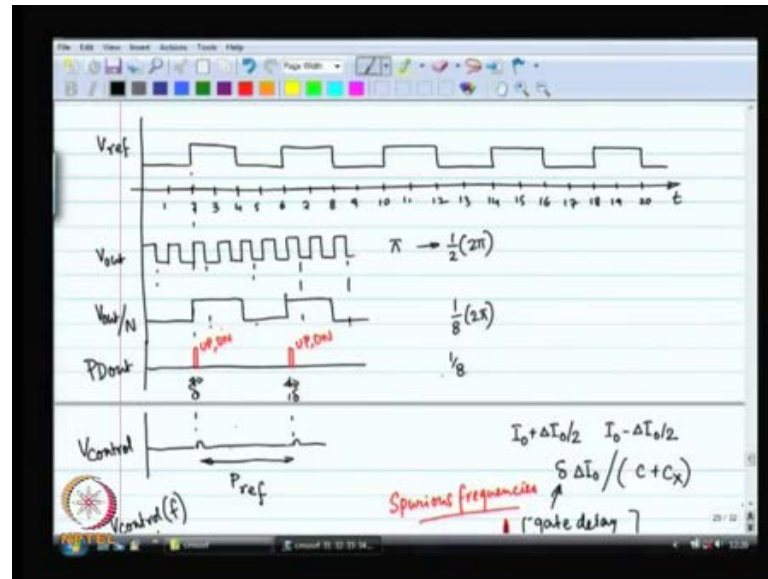 File Edit View Insert Actions Tools Help
Page Width
B I
Vref
1 2 3 4 5 6 7 8 9 10 11 12 13 14 15 16 17 18 19 20 t
Vout π → 1/2 (2π)
Vout/N 1/8 (2π)
UP, DN UP, DN
PDout 1/8
δ δ
Vcontrol
Pref
I₀+ΔI₀/2 I₀-ΔI₀/2
δ ΔI₀/(C+Cx)
Spurious frequencies
Vcontrol(f)
[gate delay]
NPTEL
12:26